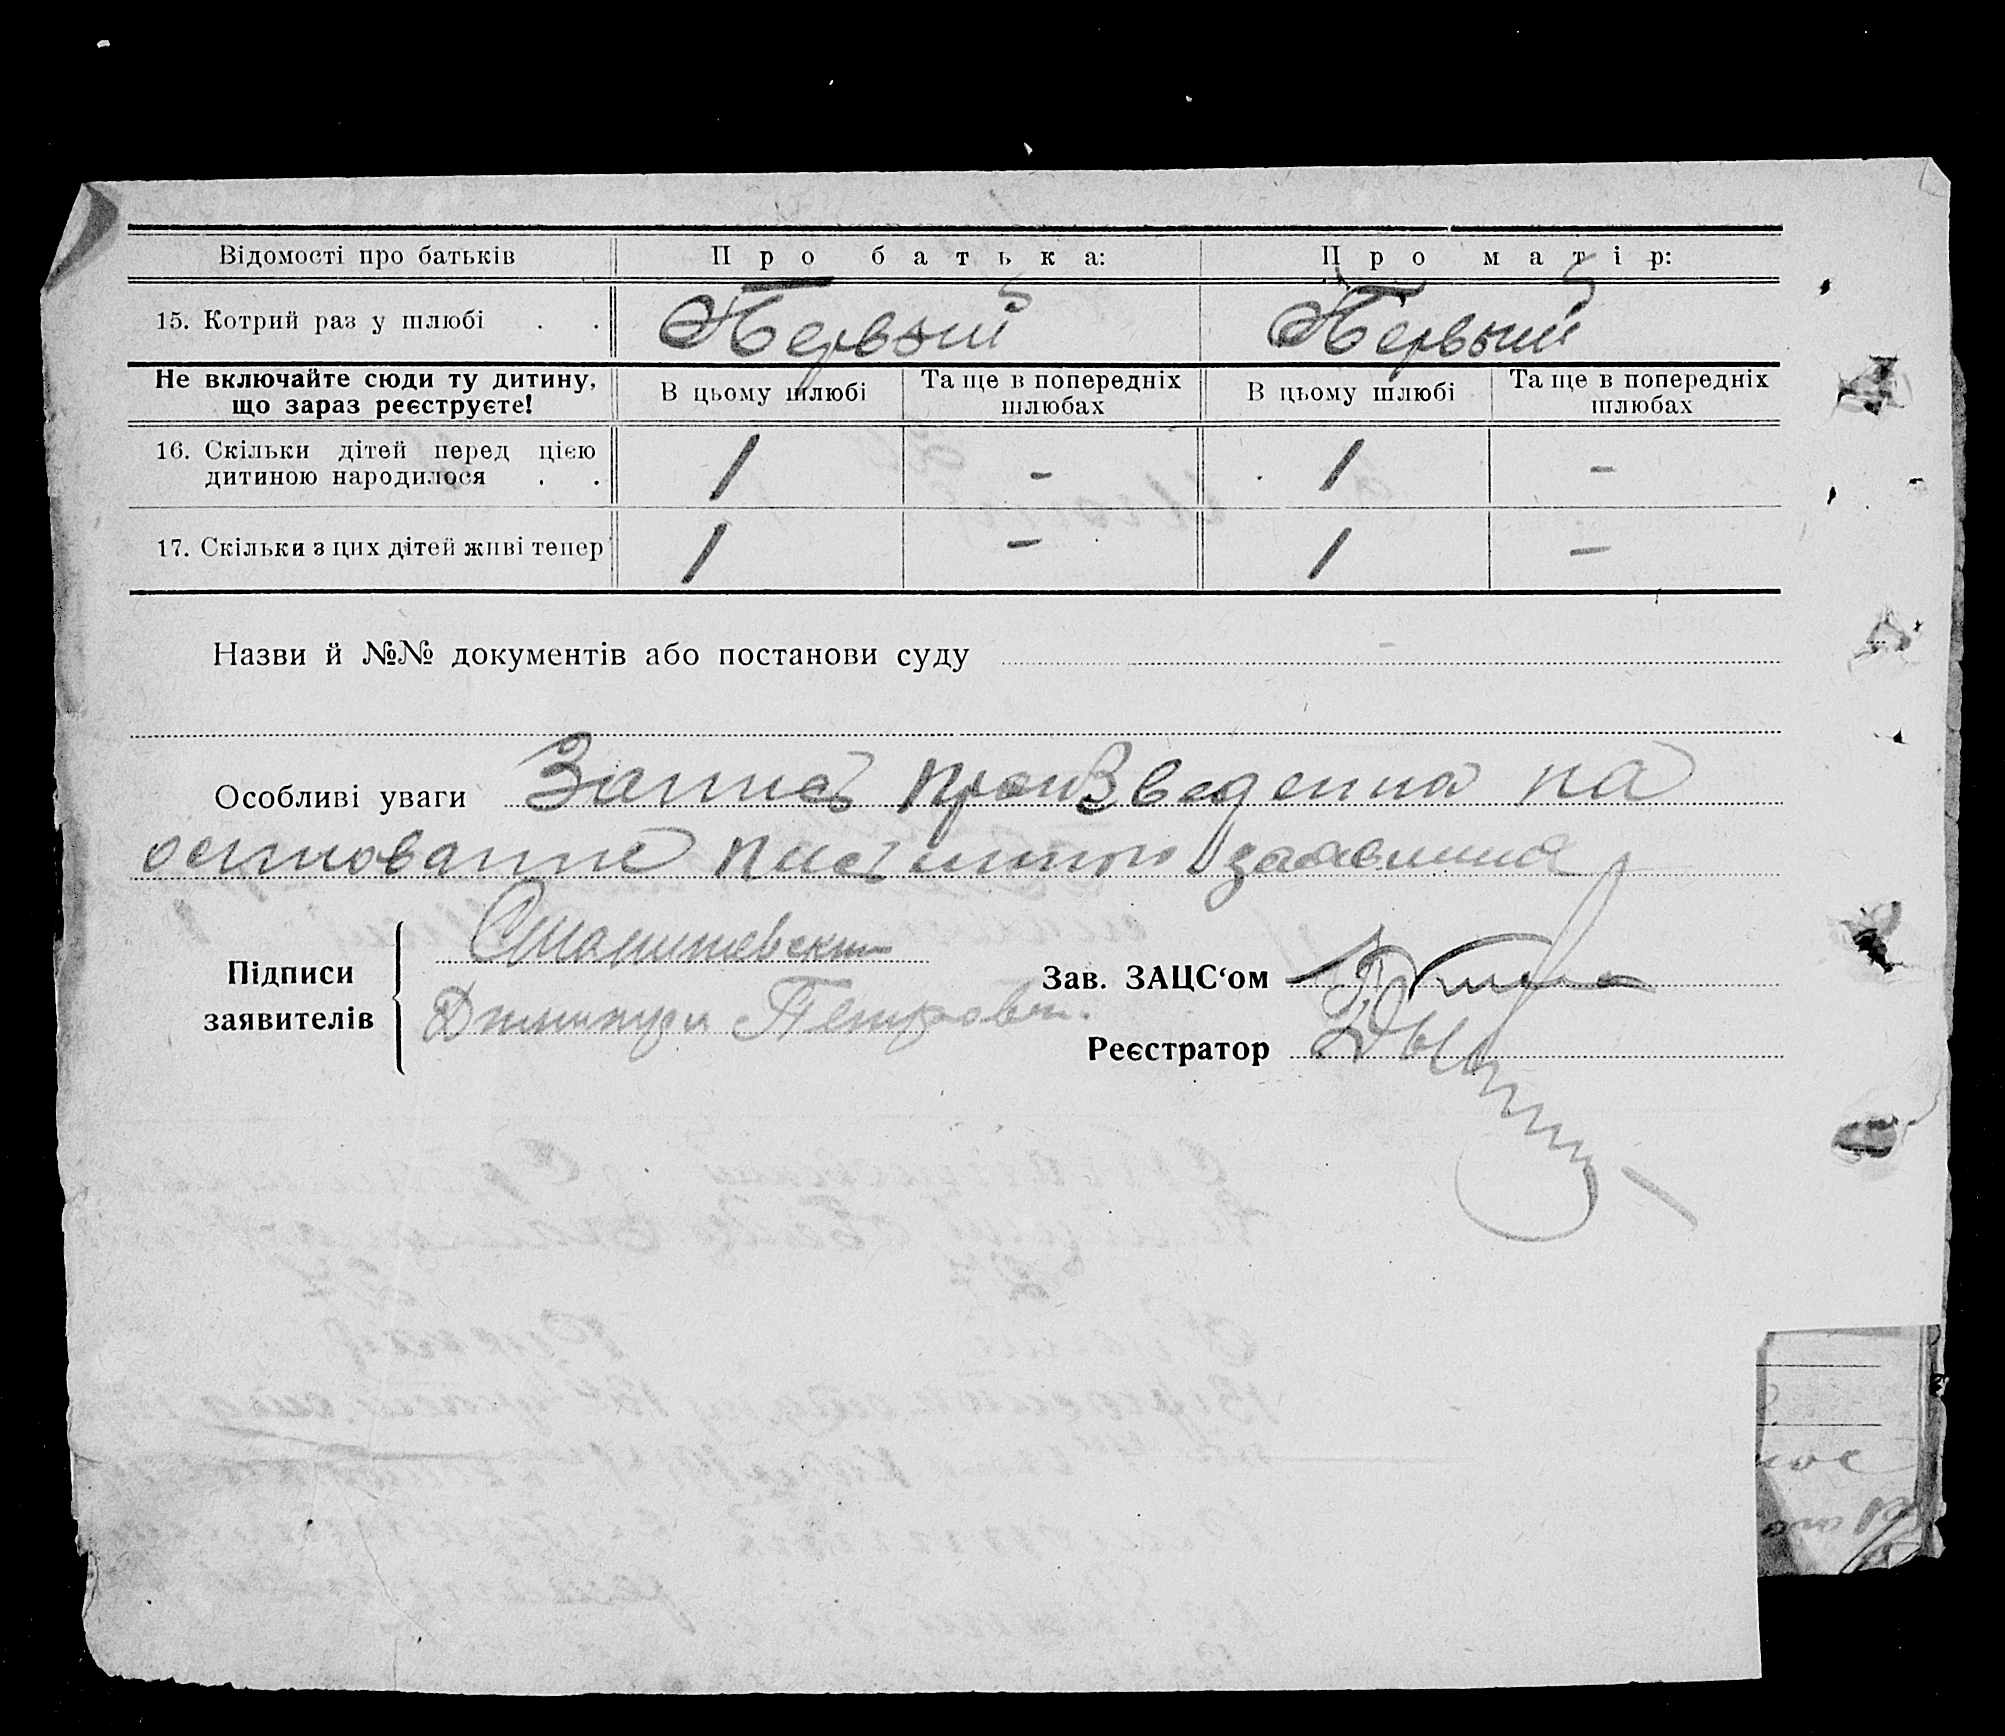 Відомості про батьків Про батька: Про матір:
15. Котрий раз у шлюбі . . Первый Первый
Не включайте сюди ту дитину, що зараз реєструєте! В цьому шлюбі Та ще в попередніх шлюбах В цьому шлюбі Та ще в попередніх шлюбах
16. Скільки дітей перед цією
дитиною народилося . . 1 - 1 -
17. Скільки з цих дітей живі тепер 1 - 1 -
Назви й №№ документів або постанови суду
Особливі уваги Запись произведенна на
основание письмного заявления
Підписи
заявителів
Станишевски
Дмитри Петрович.
Зав. ЗАЦС‘ом
Реєстратор